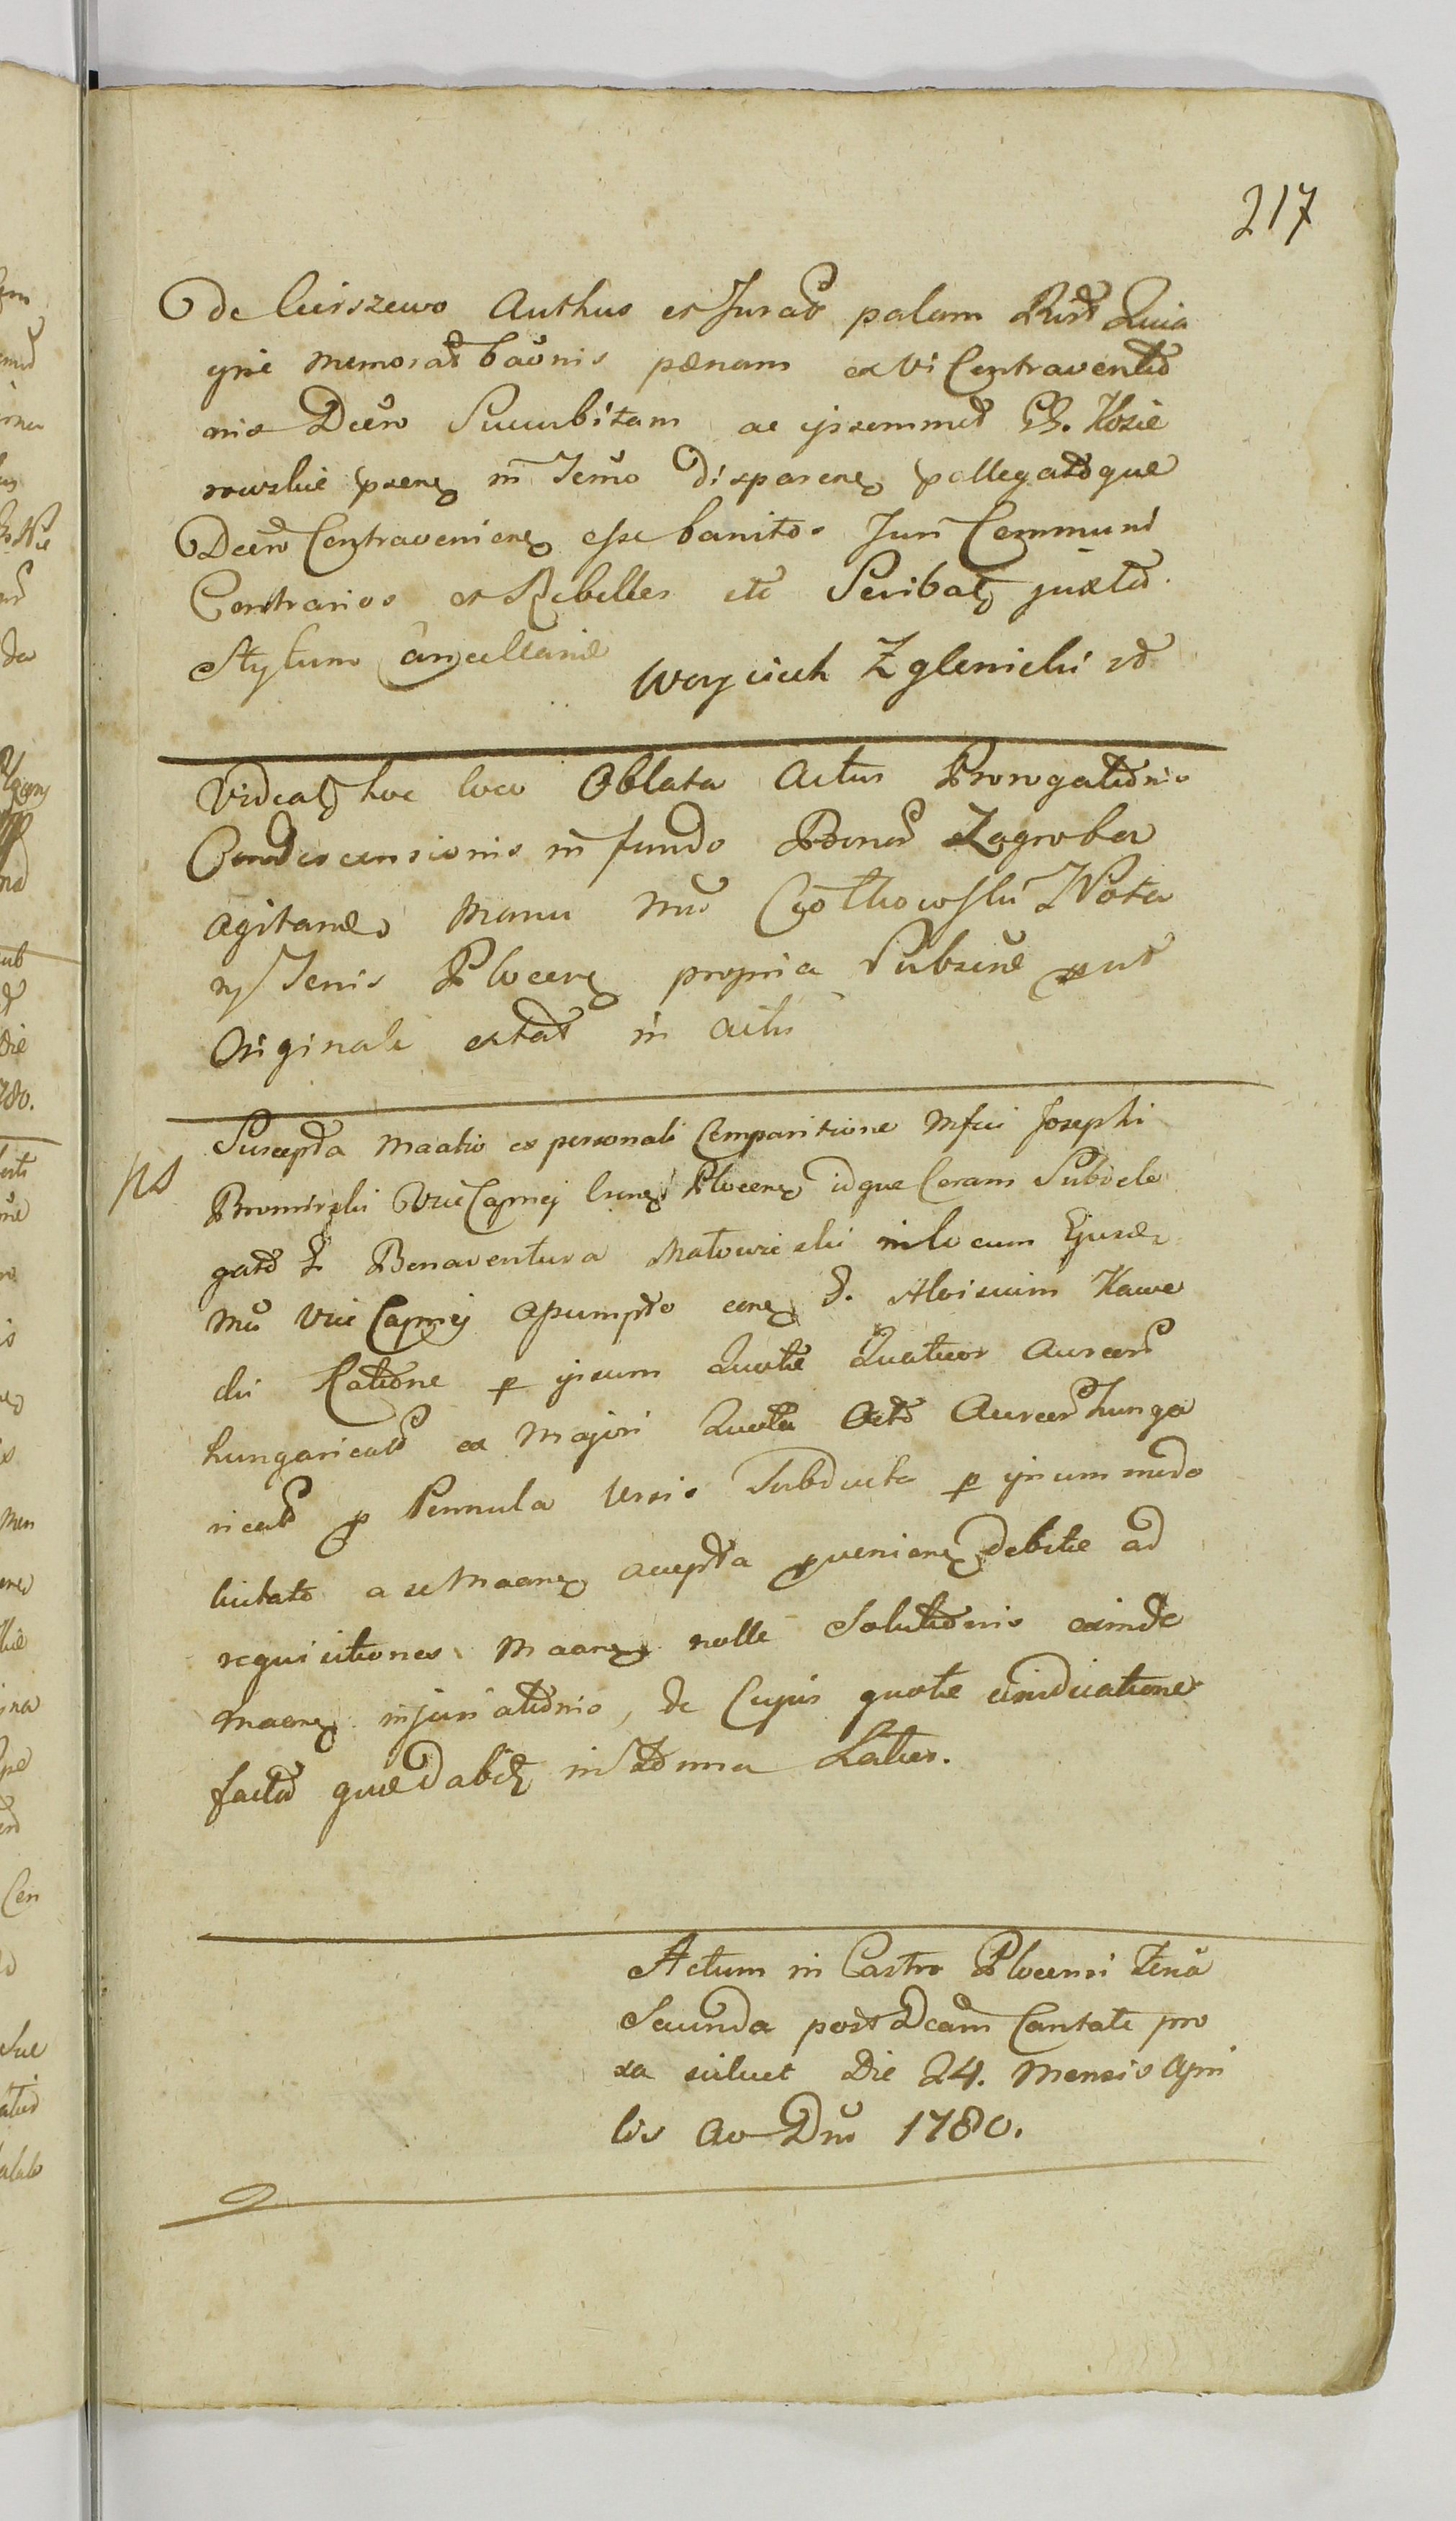 217
de Cierszewo Authus et Jurat palam Rtt Quia
ipse memorat baonis pænam ex vi Contraventio
nis Decro Sucurbitam ac ipsemmet GG. Kosie
rowskie pnens in Termo disparens pallegatoque
Decro Contraveniens esse banitos Juri Communi
Contrarios et Rebelles etc Scribatr juxta
Stylum Cancellariæ
Woyciech Zglenicki
Videatr hoc loco Oblata Actus Prorogationis
Condescensionis in fundo Bonor Zagroba
agitand Manu Mci Ciołkowski Nota
rij Tenis Plocens propria Subscriu put
Originale extat in Actu
Suscepta Maatio et personali Comparitione Mfici Josephi
Bromirski Vice Capnei Cunes Plocens idque Coram Subdele
gato G Benaventura Małowieski in locum Ejusd
Mci Vice Capnei Assumpto cone G. Aloisium Kawe
cki Ratione p ipsum Quotæ Quatuor Aureor
hungaricalr ex Majori Quota Octo Aureor Hunga
ricalr p Pennula Ursis Subducta p ipsummodo
licitato a se Maane accepta pvenienr debitæ ad
requisitiones Maane nolle Solutionis exinde
Maane injuriationis, de Cujus quotæ vindicatione
facta quæ dabitr in Tdmna Latius.
Actum in Castro Plocensi Feria
Secunda post Dcam Cantate pro
xa scilicet Die 24. Mensis Apri
lis Ao Dni 1780.